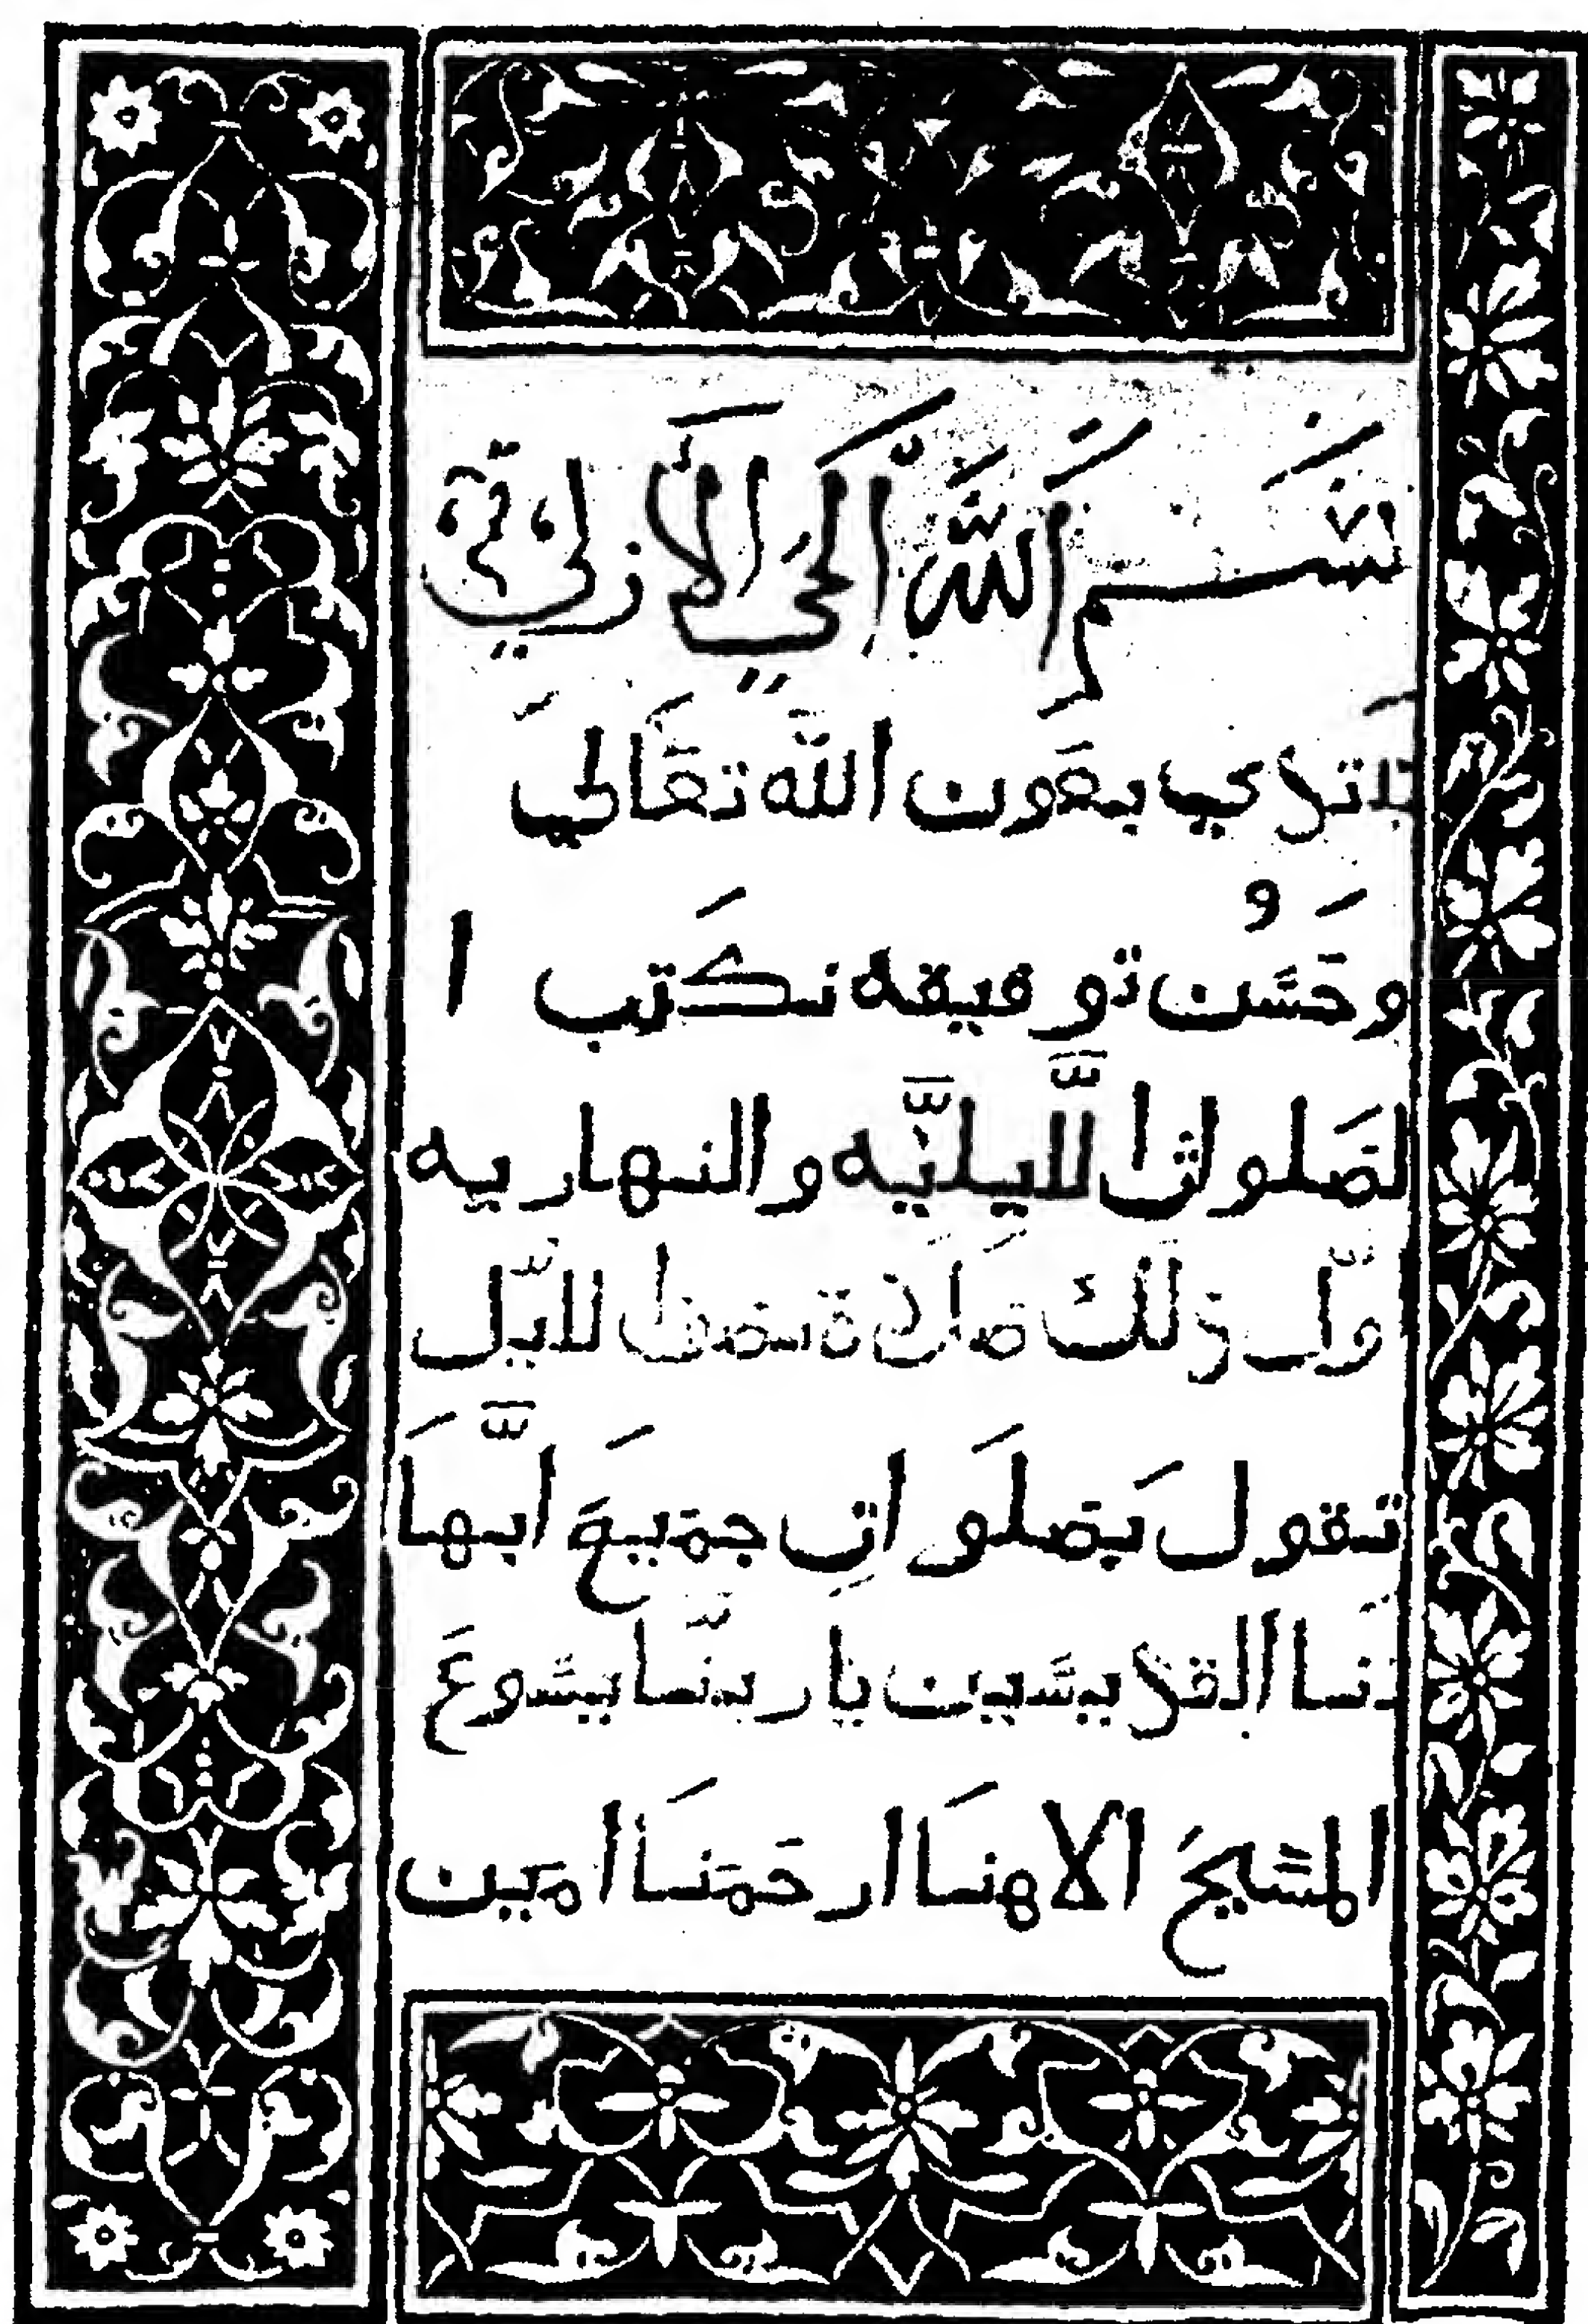 بسم الله الحي الازلي
نبتدي بعون الله تعالي
وحسن توفيقه نكتب ا
لصلواث ا لليليّه والنهاريه
اوّل ذلك صلاة نصف ا لليّل
تقول بصلواتِ جميعَ ابّهَا
تنا القديسين يا ربنّا يسوعَ
المسّيحَ الاهنَا ارحمنَا امين